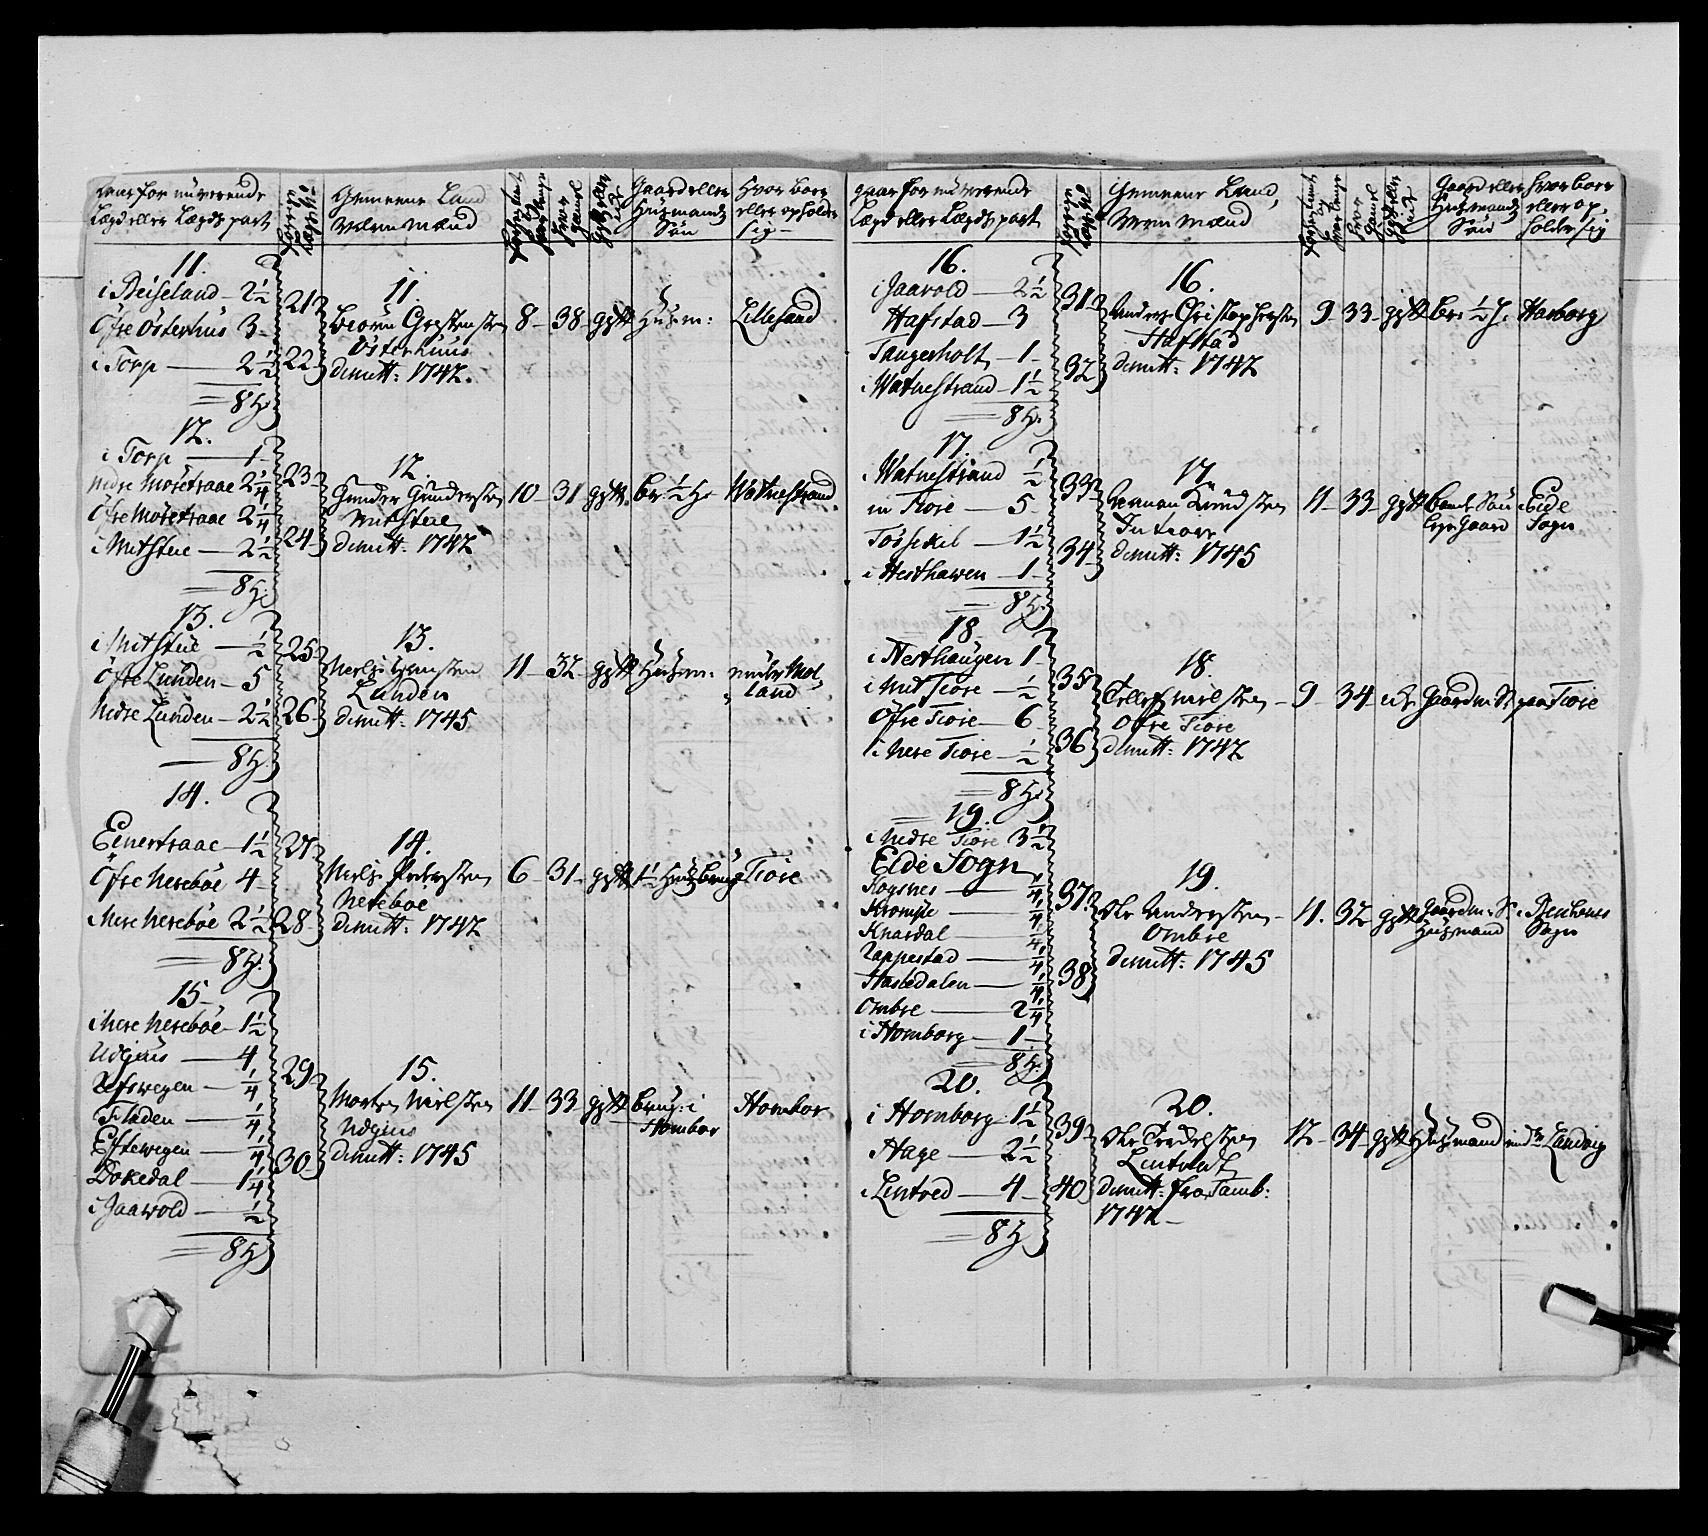 gaar for nuverende
Lægd eller Lægds part
Forrige Lægd No
Gemeene Land
Wærn Mænd
hvor gamel
gift eller
Gaard eller
Huusmands
Søn
Hvor boer
eller opholder
sig
11.
i Reiseland 2½
Øfre Østerhus 3
i Torp 2½
8 H.
21
22
11.
Beorn Grestensen
Østerhuus
dimitt: 1742.
8 38 gift Huusm: Lillesand
12.
i Torp 1
Nedre Moretraae 2¼
Øfre Moretraae 2¼
i Mitstue 2½
8 H.
23
24
12.
Gunder Gundersen
Mitstue
dimitt: 1742
10 31 gift br ½ H. Watnestrand
13.
i Mitstue ½
Øfre Lunden 5
Nedre Lunden 2½
8 H.
25
26
13.
Lunden
dimitt: 1745
11 32 gift Huusm:
land
14.
Eenertraae 1½
Øfre Nereboe 4
i Nere Nereboe 2½
8 H.
27
28
14.
Niels Pedersen
Nereboe
dimitt: 1742
6 31 gift Tiore
15
i Nere Nereboe 1½
Udjuus 4
Refswegen ¼
Fladen ¼
Eftewegen ¼
Dokedal 1¼
i Jaawold ½
8 H.
29
30
15.
Morten Nielsen
dimitt: 1745
11 33 gift brug: i Hombor
Hombor
gaar for nuverende
Lægd eller Lægds part
Forrige Lægd No
Gemeene Land,
Wern Mænd
hvor gamel
gift eller
Gaard eller
Huusmands
Søn
hvor boer
eller op,
holder sig
16.
i Jaavold 2½
Hafstad 3
Tangesholt 1
i Watnestrand 1½
8 H.
31
32
16.
Anders Christophersen
Hafstad
dimitt: 1742
9 33 gift br: ½ H. Hamborg
17.
i Watnestrand ½
in Tiore 5
Tossekil 1½
i Nesthawen 1
8 H.
33
34
17.
Knudsen
In Tiore
dimitt: 1745
11 33 gift Søn i Eide
Gaard Sogn
18.
i Nesthaugen 1
i Mit Tiore ½
Øfre Tiore 6
i Nere Tiore ½
8 H.
35
36
18.
Tellef Nielsen
Øfre Tiore
dimitt: 1742
9 34 Gaardm: S: paa Tiore
19.
i Nedre Tiore 3½
Eide Sogn
Rogsnes ¼
Kromsie ¼
Knardal ¼
Rappestad ¼
Hasledalen ¼
Ombre 2¼
i Homborg 1
8 H.
37
38
19.
Ole Andersen
Ombre
dimitt: 1745
11. 32 gift Gaardm: S:
Huusmand Sogn
20.
i Homborg 1½
Hage 2½
i Lintved 4
8 H
39
40
20.
Lintvedt
dimitt: fra Tamb:
1742
12 34 gift Huusmand ind i Landvig